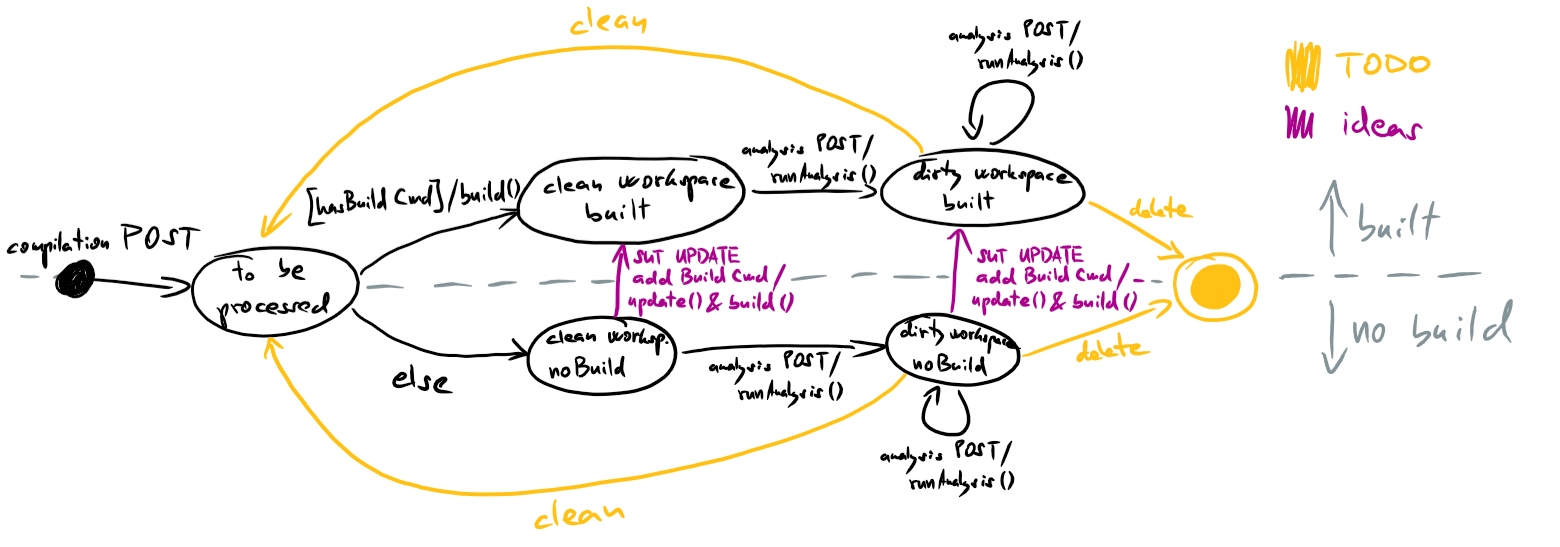 clean
analysis POST/
runAnalysis()
TODO
ideas
[hasBuild Cmd]/build()
analysis POST/
runAnalysis()
clean workspace
built
dirty workspace
built
delete
built
compilation POST
to be
processed
SUT UPDATE
add Build Cmd/
update() & build()
SUT UPDATE
add Build Cmd/
update() & build()
no build
else
clean worksp.
noBuild
analysis POST/
runAnalysis()
dirty workspace
noBuild
delete
analysis POST/
runAnalysis()
clean